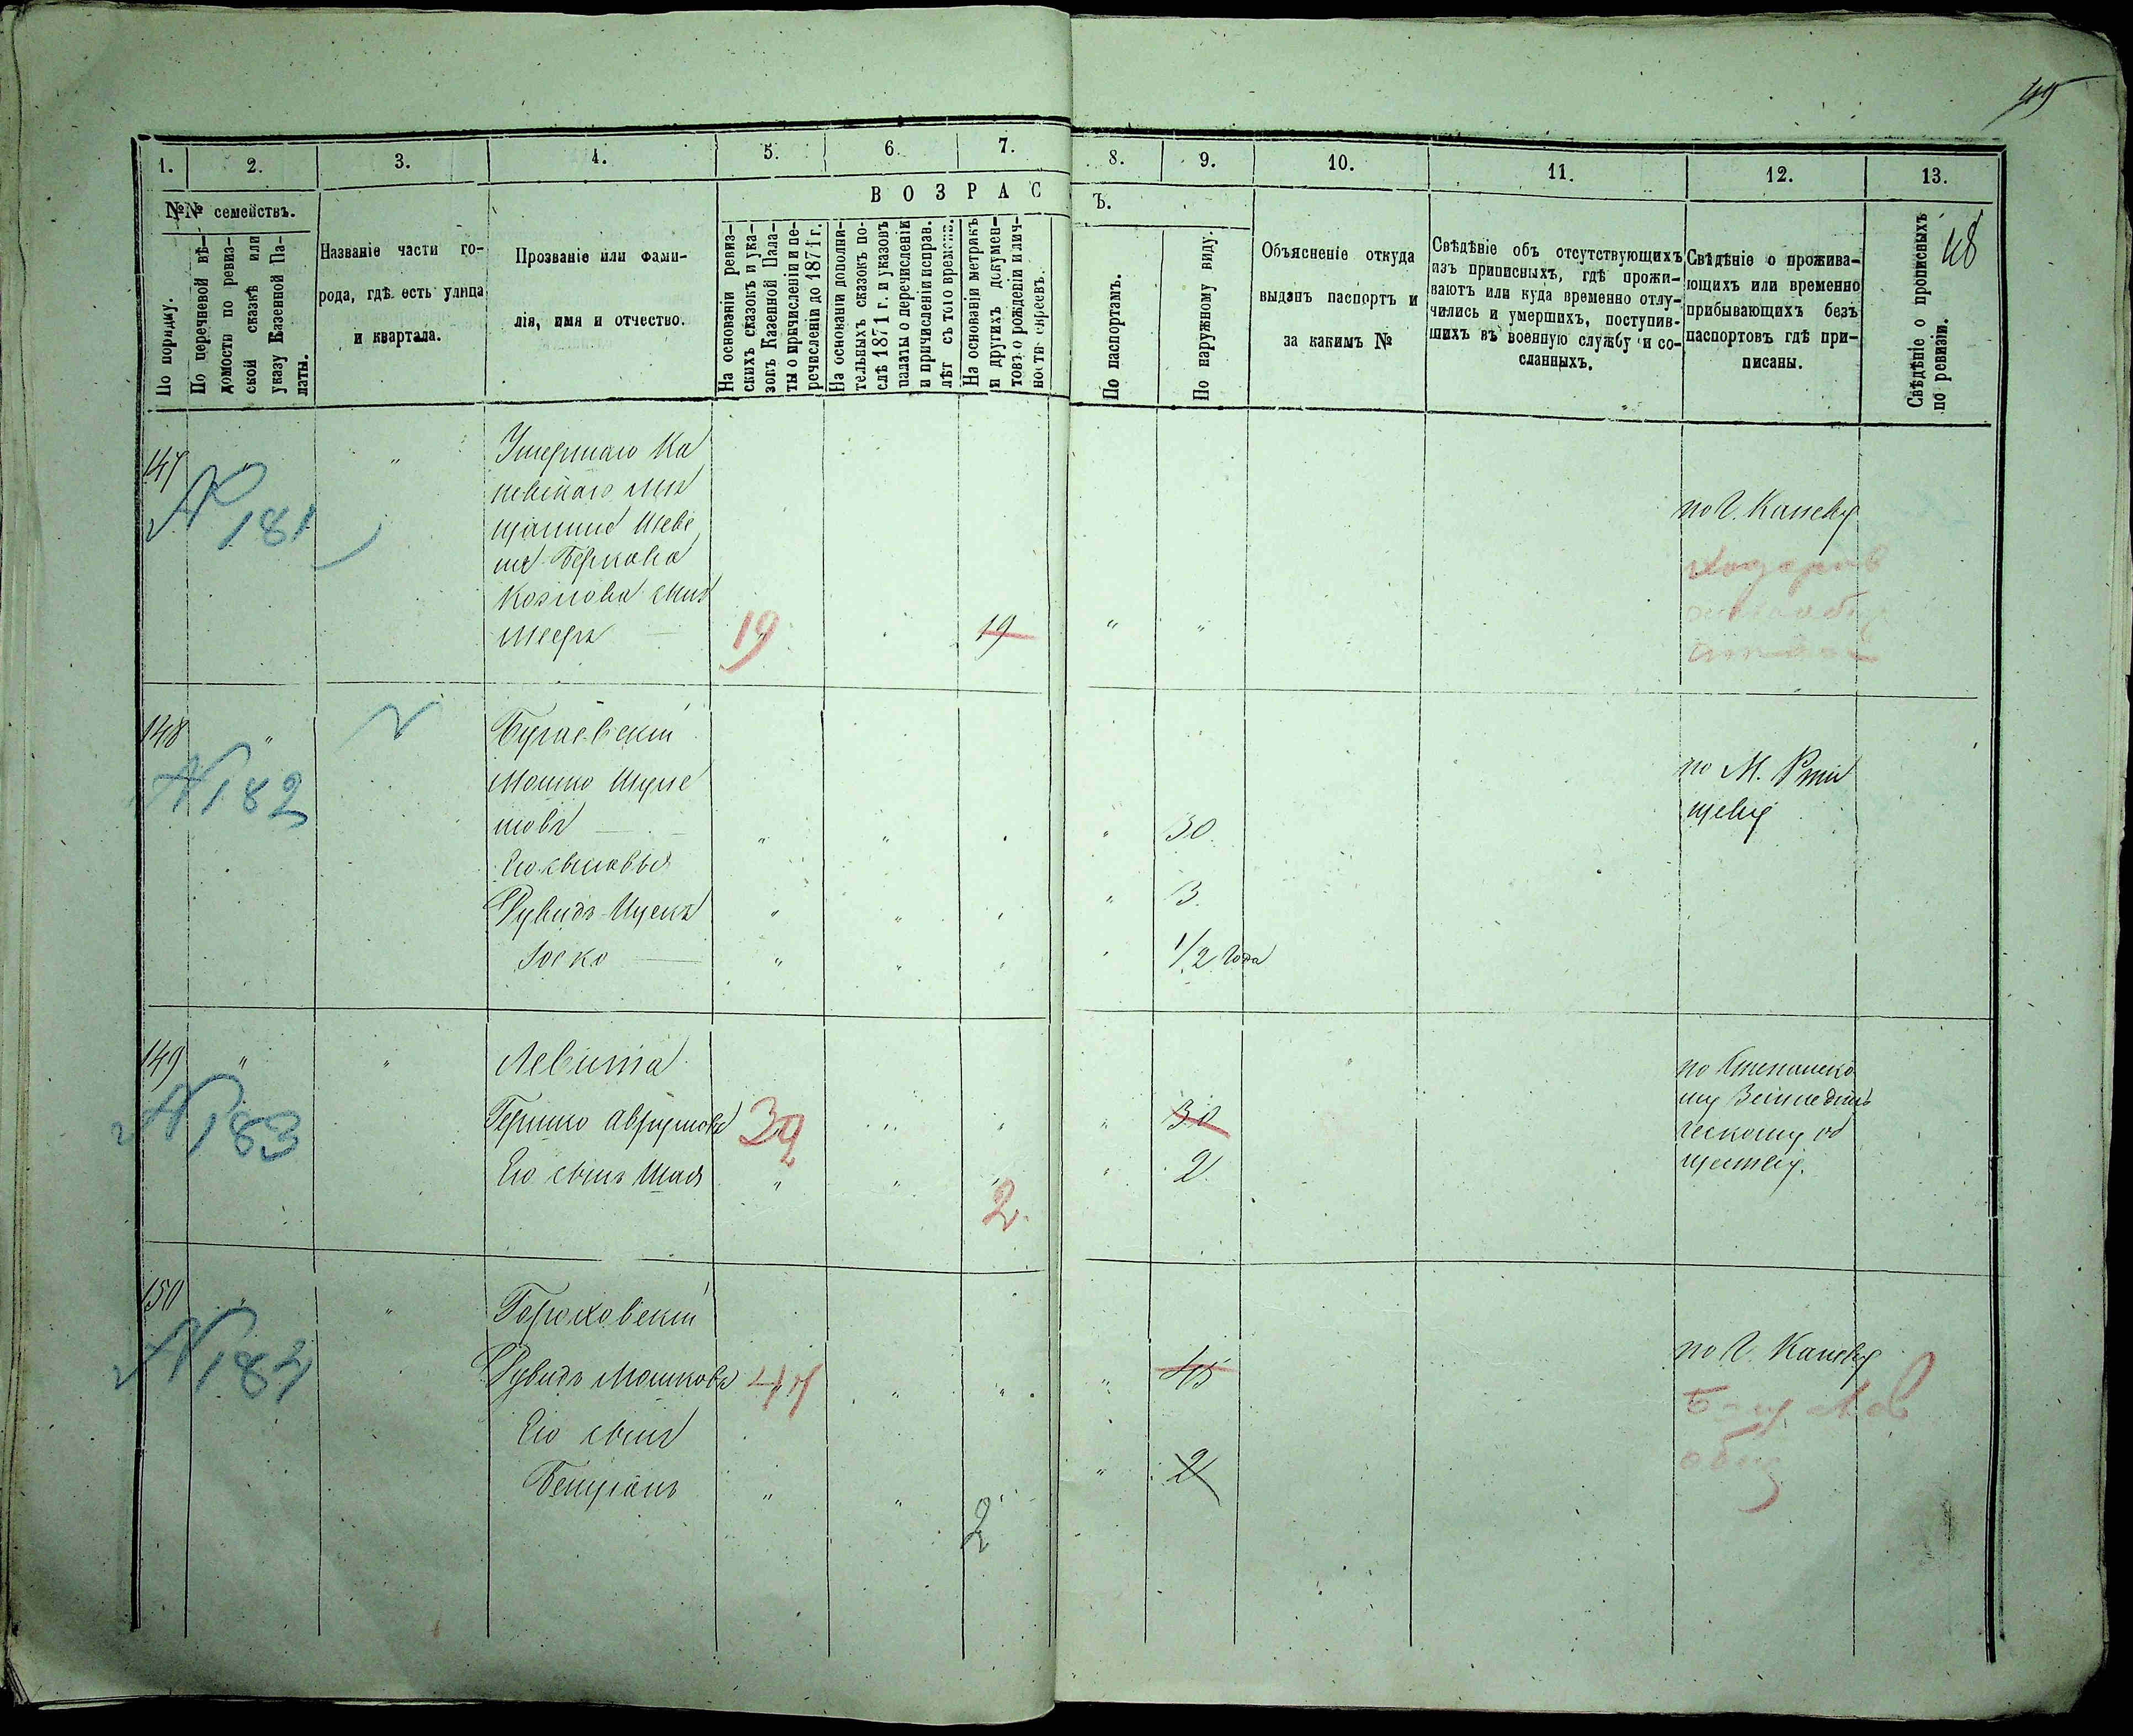 49
48
1.
2.
3.
4.
5.
6.
7.
8.
9.
10.
11.
12.
13.
№№ семействъ.
По порядку.
По перечневой вѣ-
домости по ревиз-
ской сказкѣ или
указу Казенной Па-
латы.
Названіе части го-
рода, гдѣ есть улица
и квартала.
Прозваніе или фами-
лія, имя и отчество.
ВОЗРАС
Ъ.
На основаніи ревиз-
скихъ сказокъ и ука-
зовъ Казенной Пала-
ты о причисленіи и пе-
речисленіи до 1871 г.
На основаніи дополни-
тельныхъ сказокъ по-
слѣ 1871 г. и указовъ
палаты о перечисленіи
и причисленіи исправ.
лѣт съ того времени.
На основаніи метрикъ
и другихъ докумен-
товъ о рожденіи и лич-
ности евреевъ.
По паспортамъ.
По наружному виду.
Объясненіе откуда
выданъ паспортъ и
за какимъ №
Свѣдѣніе объ отсутствующихъ
изъ приписныхъ, гдѣ прожи-
ваютъ или куда временно отлу-
чились и умершихъ, поступив-
шихъ въ военную службу и со-
сланныхъ.
Свѣдѣніе о прожива-
ющихъ или временно
прибывающихъ безъ
паспортовъ гдѣ при-
писаны.
Свѣдѣніе о прописныхъ
по ревизіи.
147
"
№ 181
Умершаго Ка
невскаго мѣ
щанина
Беркова
Козлова сынъ
Мееръ
19
19
" "
по г. Каневу
148
"
№ 182
Бугаевскій
Мошко Шуле
мовъ
30
Его сыновья
Рувидъ-Ицекъ
3
Іоско
1/2 года
по М. Рти
щеву
149
" "
№ 183
Левита
Гершко Аврумовъ
32
30
Его сынъ Шая
2
2.
по Степанско
му Земледѣль
ческому об
ществу.
150
" "
№ 184
Гороховскій
Рувидъ Мошковъ
47
45
Его сынъ
Бенціонъ
2
2
по г. Каневу
общ